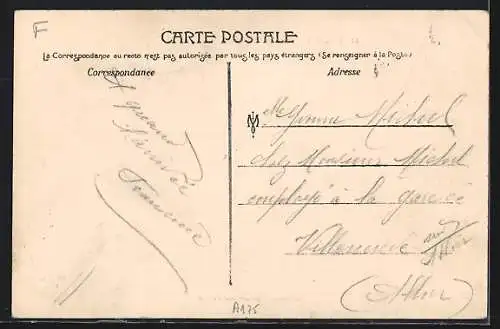 F
CARTE POSTALE
La Correspondance au recto n'est pas autorisée par tous les pays étrangers (Se renseigner à la Poste)
Correspondance
Adresse
A quand
l'arrivée
M
Mlle Yvonne Michel
chez Monsieur Michel
employé à la gare
Villeneuve sur
Allier
(Allier
A175